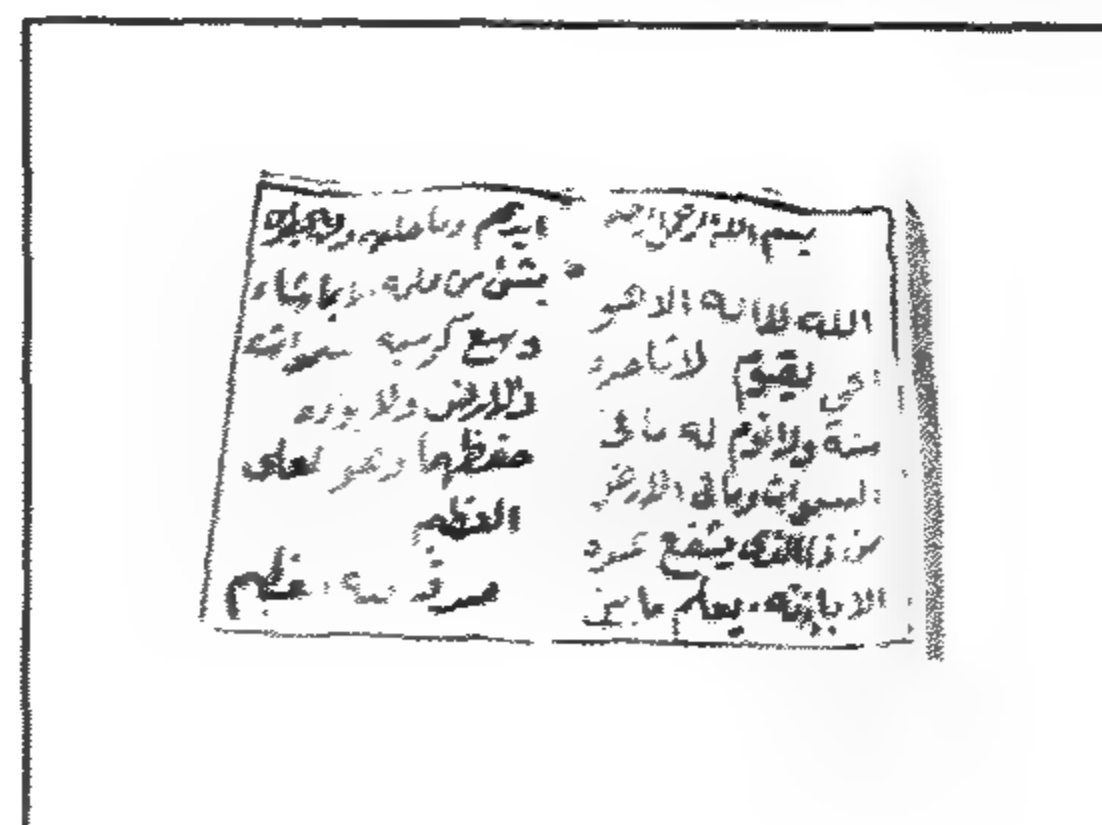 بسم الله الرحمن الرحيم
الله لا اله الا هو
الحي القيوم لا تاخذه
سنة ولا نوم له ما في
السموات وما في الارض
من ذا الذي يشفع عنده
الا باذنه يعلم ما بين
ايديهم وما خلفهم ولا يحيطون
بشئ من علمه الا بما شاء
وسع كرسيه السموات
والارض ولا يؤده
حفظهما وهو العلي
العظيم
صدق الله العظيم